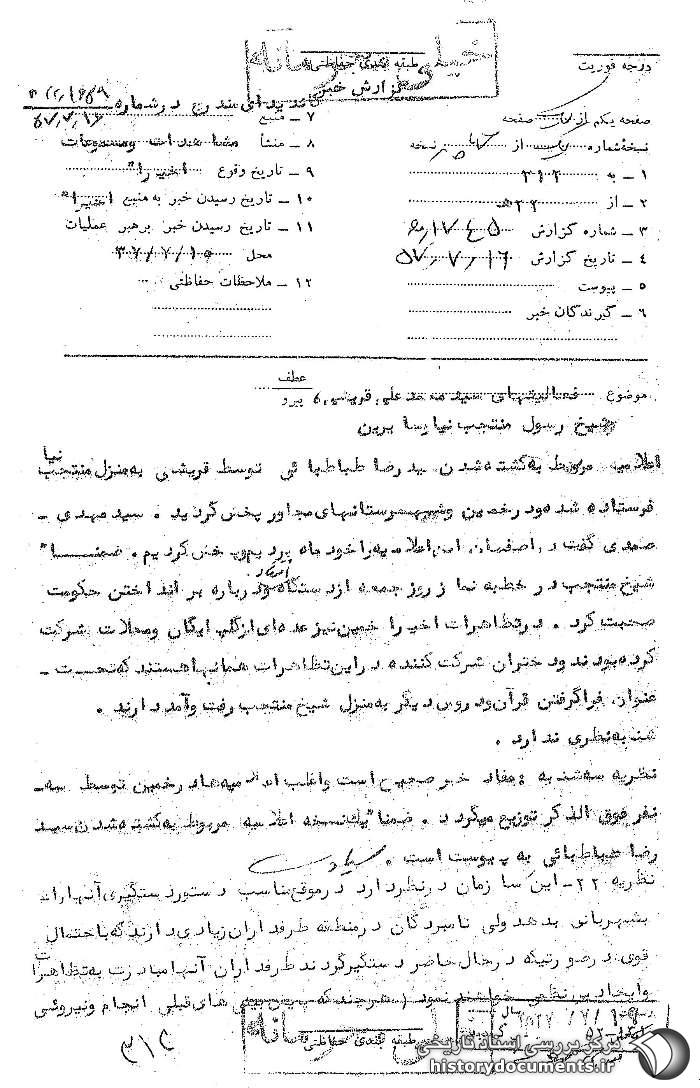 خیلی محرمانه
طبقه بندی حفاظتی
گزارش خبر
درجه فوریت
صفحه یکم از صفحه
نسخهٔ شماره از نسخه
۱ – به ۳۱۲
۲ – از ۲۲ ه
۳ – شماره گزارش
۴ – تاریخ گزارش ۵۷٫۷٫۱۶
۵ – پیوست
۶ – گیرندگان خبر
۷ – منبع
۸ – منشأ مشاهدات ومسموعات
۹ – تاریخ وقوع اخیرا"
۱۰ – تاریخ رسیدن خبر به منبع اخیرا"
۱۱ – تاریخ رسیدن خبر برهبر عملیات
محل
۱۲ – ملاحظات حفاظتی
موضوع فعالیتهای سید محمد علی قریشی عطف پیرو
شیخ رسول منتجب نیا
اعلامیه مربوط به کشته شدن سید رضا طباطبائی توسط قریشی به منزل منتجب نیا
فرستاده شده ودرخمین وشهرستانهای مجاور پخش گردید . سید مهدی –
صمدی گفت در اصفهان این اعلامیه را خود ما پخش کردیم . ضمنا"
شیخ منتجب در خطبه نماز روز جمعه از دستگاه انتقاد ودرباره بر انداختن حکومت
صحبت کرد . درتظاهرات اخیر خمین نیز عده ای از گلپایگان ومحلات شرکت
کرده بودند ودختران شرکت کننده در این تظاهرات همانها هستند که تحت –
عنوان فراگرفتن قرآن ودروس دیگر به منزل شیخ منتجب رفت وآمد دارند .
شنبه نظری ندارد .
نظریه سه شنبه : مفاد خبر صحیح است واغلب اعلامیه ها در خمین توسط سه –
نفر فوق الذکر توزیع میگردد . ضمنا" یک نسخه اعلامیه مربوط به کشته شدن سید
رضا طباطبائی به پیوست است .
نظریه ۲۲ – این سازمان درنظر دارد درموقع مناسب دستور دستگیری آنها را به
شهربانی بدهد ولی نامبردگان در منطقه طرفداران زیادی دارند که باحتمال
قوی در صورتیکه در حال حاضر دستگیر گردند طرفداران آنها مبادرت به تظاهرات
وایجاد بی نظمی خواهند نمود ( هر چند که پیش بینی های قبلی انجام ونیروئی
طبقه بندی حفاظتی
خیلی محرمانه
۳۱۲
مرکز بررسی اسناد تاریخی
historydocuments.ir